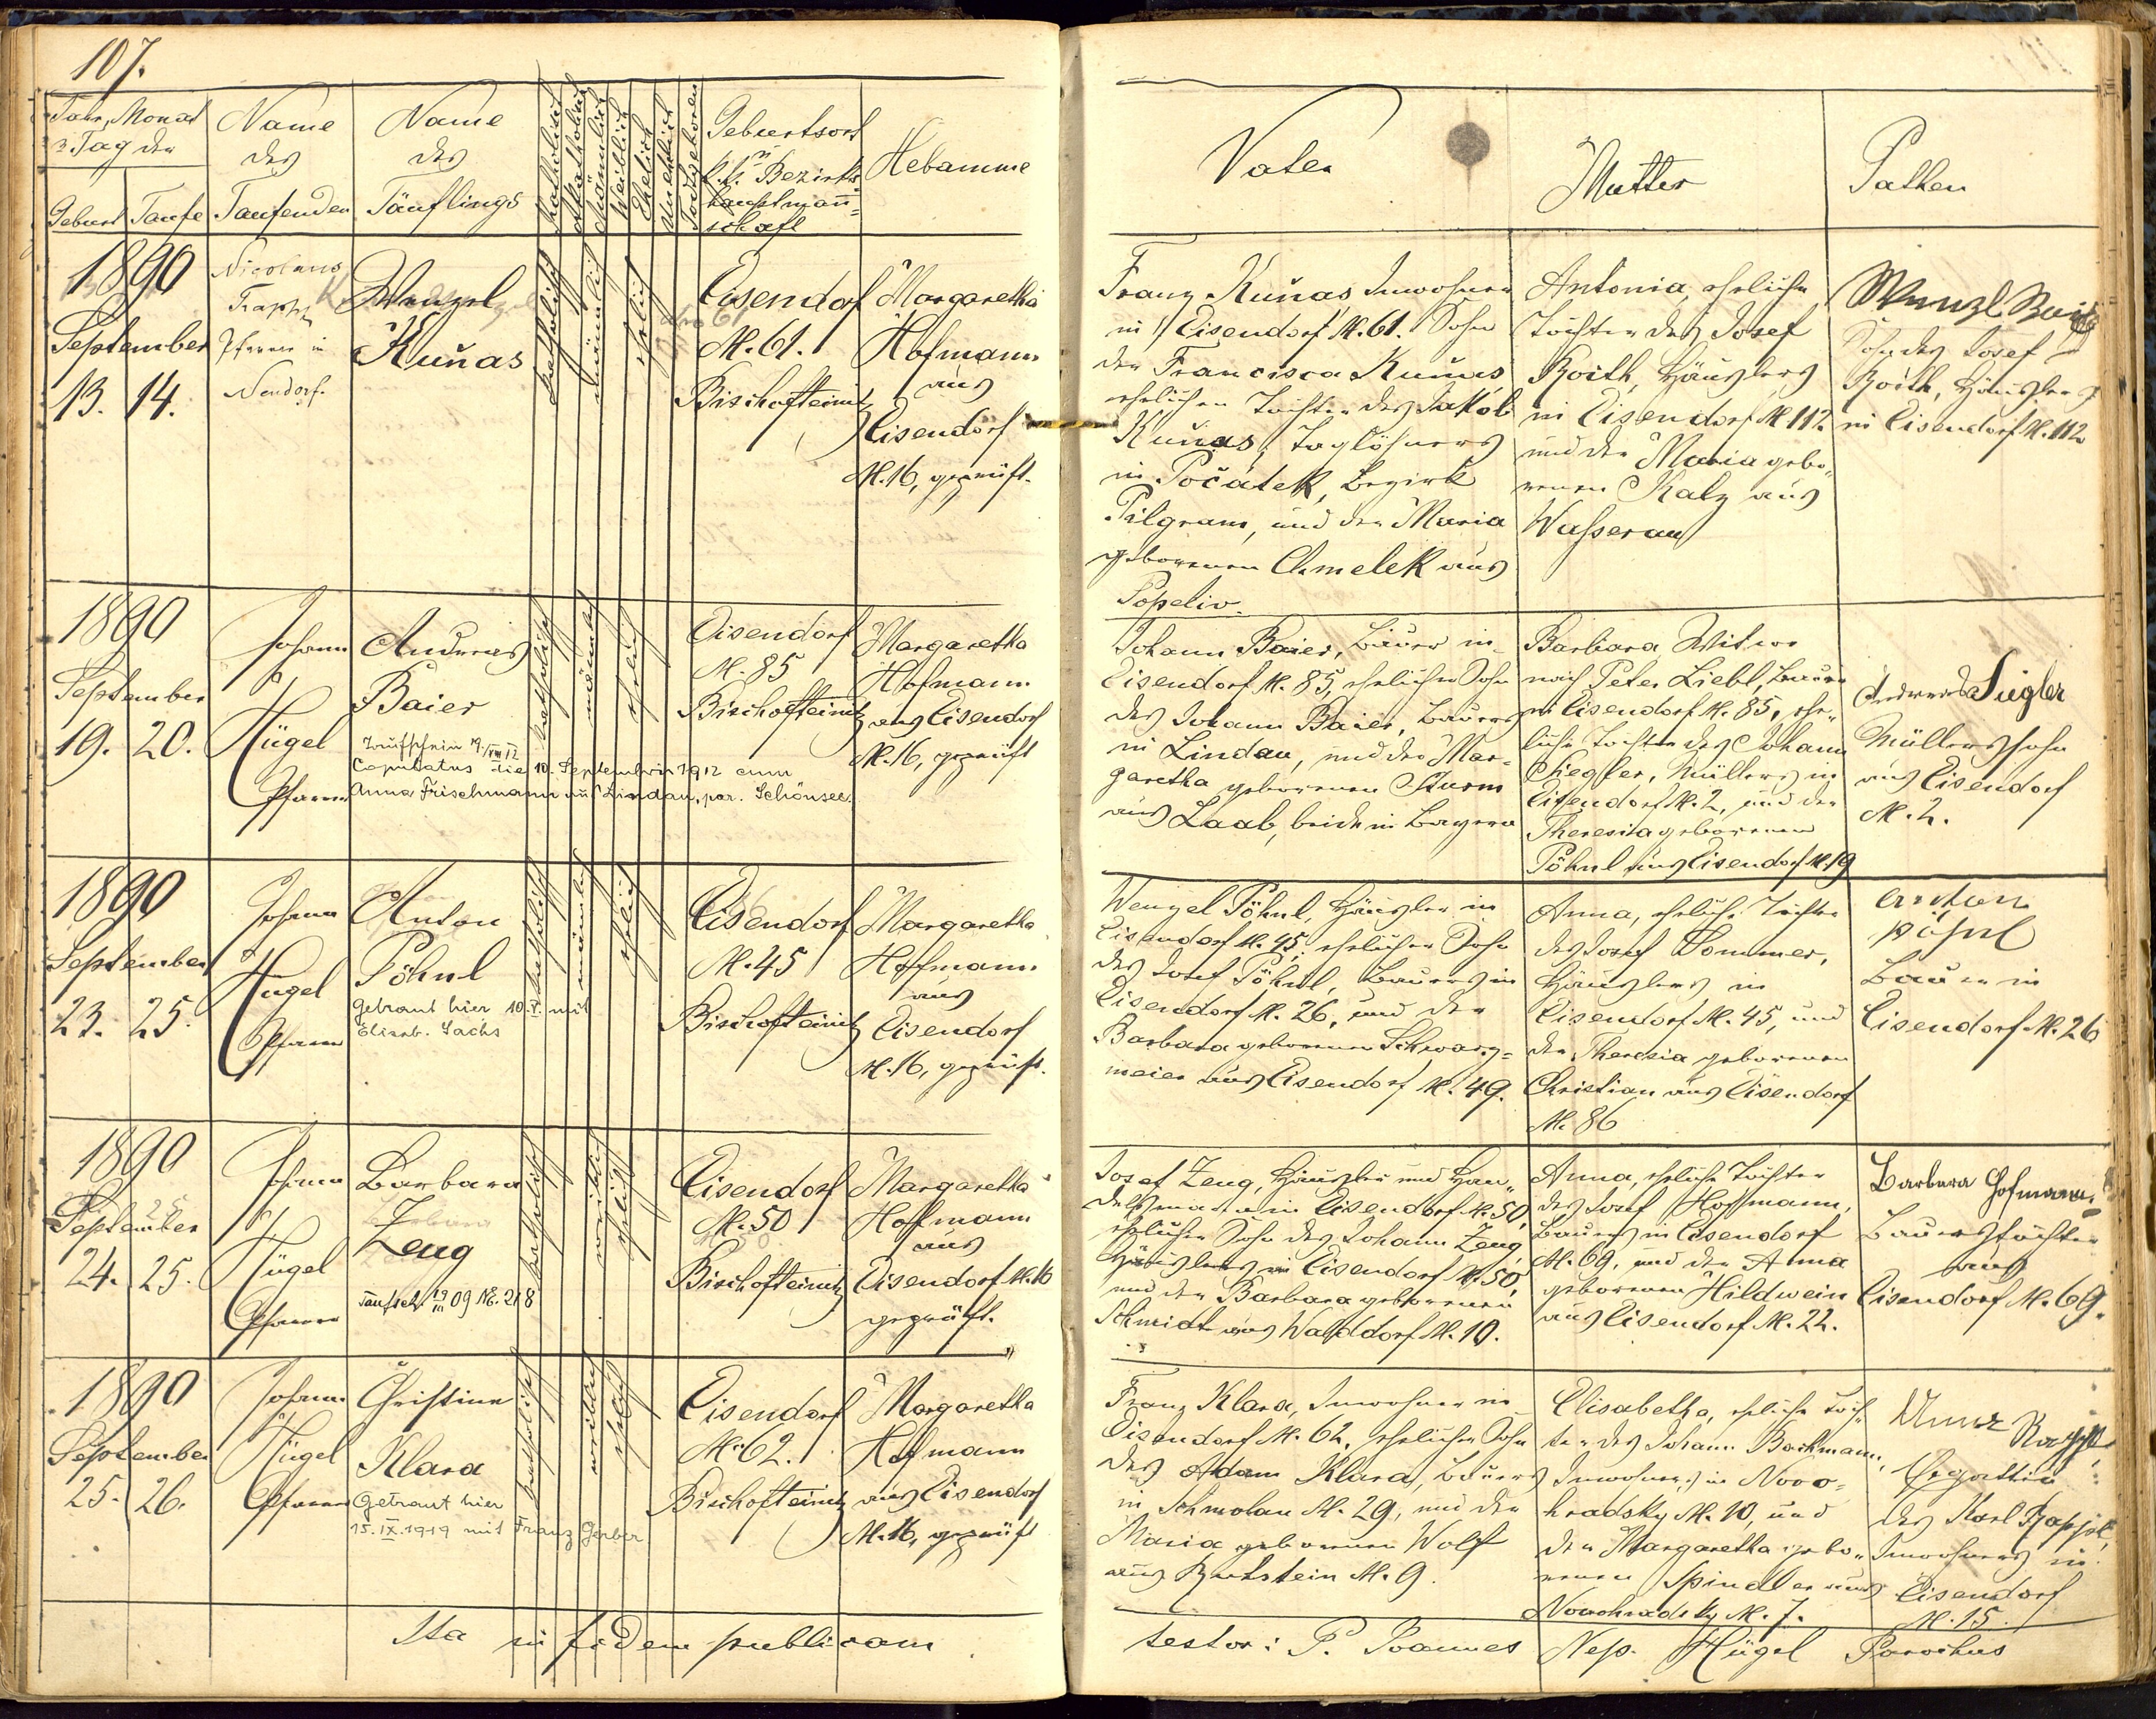 107.
Jahr, Monat
u. Tag der
Geburt
Taufe
Name
des
Taufenden
Name
des
Täuflings
Katholisch
Akatholisch
Männlich
Weiblich
Ehelich
Unehelich
Todtgeboren
Geburtsort
u.
k.k. Bezirks
hauptmann=
schaft
Hebamme
Vater
Mutter
Pathen
1890
September
13. 14.
Nicolaus
Trapp
Pfarrer in
Neudorf.
Wenzel
Kuňas
katholisch
männlich
ehelich
Eisendorf
N. 61.
Bischofteinitz
Margaretha
Hofmann
aus
Eisendorf
N. 16, geprüft.
Franz Kuňas Inwohner
in Eisendorf N. 61. Sohn
der Francisca Kuňas
ehelichen Tochter des Jakob
Kuňas, Taglöhners
in Počátek, Bezirk
Pilgram, und der Maria
geborenen Chmelek aus
Popeliv.
Antonia, eheliche
Tochter des Josef
Roith, Häuslers
in Eisendorf N 112
und der Maria gebo„
renen Kalz aus
Wasserau
Wenzl Roith
Sohn des Josef
Roith, Häuslers
in Eisendorf N. 112
1890
September
19. 20.
Johann
N.
Hügel
Pfarrer
Andreas
Baier
Taufschein 9./VIII 12
Copulatus die 10. Septembris 1912 cum
Anna Frischmann aus Lindau, par. Schönsee.
katholisch
männlich
ehelich
Eisendorf
N. 85
Bischofteinitz
Margaretha
Hofmann
aus Eisendorf
N. 16, geprüft
Johann Baier, Bauer in
Eisendorf N. 85, ehelicher Sohn
des Johann Baier, Bauers
in Lindau, und der Mar=
garetha geborenen Sturm
aus Laab, beide in Bayern
Barbara Witwe
nach Peter Liebl, Bauer
in Eisendorf N. 85, ehe„
liche Tochter des Johann
Ziegler, Müllers in
Eisendorf N. 2, und der
Theresia geborenen
Pöhnl aus Eisendorf N. 19
Andreas Siegler
Müllerssohn
aus Eisendorf
N. 2.
1890
September
23. 25.
Johann
N.
Hügel
Pfarrer
Anton
Pöhnl
getraut hier 10.V. mit
Elisab. Sachs
katholisch
männlich
ehelich
Eisendorf
N. 45
Bischofteinitz
Margaretha
Hofmann
aus
Eisendorf
N. 16, geprüft.
Wenzel Pöhnl, Häusler in
Eisendorf N. 45, ehelicher Sohn
des Josef Pöhnl, Bauers in
Eisendorf N. 26, und der
Barbara geborenen Schwarz=
meier aus Eisendorf N. 49.
Anna, eheliche Tochter
des Josef Sommer,
Häuslers in
Eisendorf N. 45, und
der Theresia geborenen
Christian aus Eisendorf
N. 86
Anton
Pöhnl
Bauer in
Eisendorf N. 26
1890
September
24. 25.
Johann
N.
Hügel
Pfarrer
Barbara
Zeug
Taufsch. 19/III 09 N. 218
katholisch
weiblich
ehelich
Eisendorf
N. 50
Bischofteinitz
Margaretha
Hofmann
aus
Eisendorf N. 16
geprüft.
Josef Zeug, Häusler und Han„
delsmann in Eisendorf N. 50,
ehelicher Sohn des Johann Zeug
Häuslers in Eisendorf N. 50,
und der Barbara geborenen
Schmidt aus Walddorf N. 10.
Anna, eheliche Tochter
des Josef Hoffmann,
Bauers in Eisendorf
N. 69, und der Anna
geborenen Hildwein
aus Eisendorf N. 22.
Barbara Hofmann.
Bauerstochter
aus
Eisendorf N. 69.
1890
September
25. 26.
Johann
N.
Hügel
Pfarrer
Christine
Klara
Getraut hier
15.IX.1919 mit Franz Gerber
katholisch
weiblich
ehelich
Eisendorf
N. 62.
Bischofteinitz
Margaretha
Hofmann
aus Eisendorf
N. 16, geprüft
Franz Klara, Inwohner in
Eisendorf N. 62, ehelicher Sohn
des Adam Klara, Bauers
in Schmolau N. 29, und der
Maria geborenen Wolf
aus Ruhstein N. 9.
Elisabetha, eheliche Toch„
ter des Johann Bachmann,
Inwohners in Novo=
hradsky N. 10, und
der Margaretha gebo„
renen Spindler aus
Novohradsky N. 7.
Anna
Ehegattin
des Karl Rappl,
Inwohners in
Eisendorf
N. 15.
Ita in fidem publicam
testor: P. Joannes Nep. Hügel Parochus